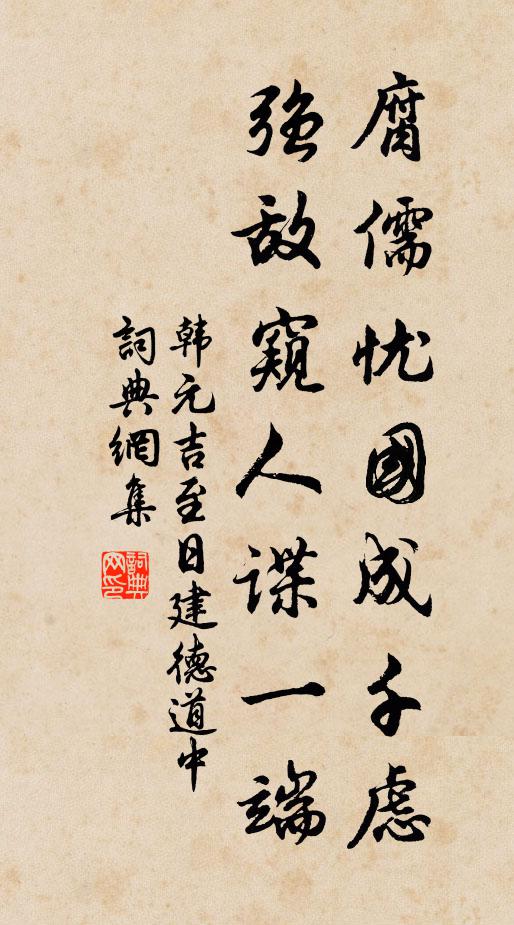 腐儒忧國成千虑
强敌窥人谍一端
韩元吉至日建德道中
詞典網集
詞典网印